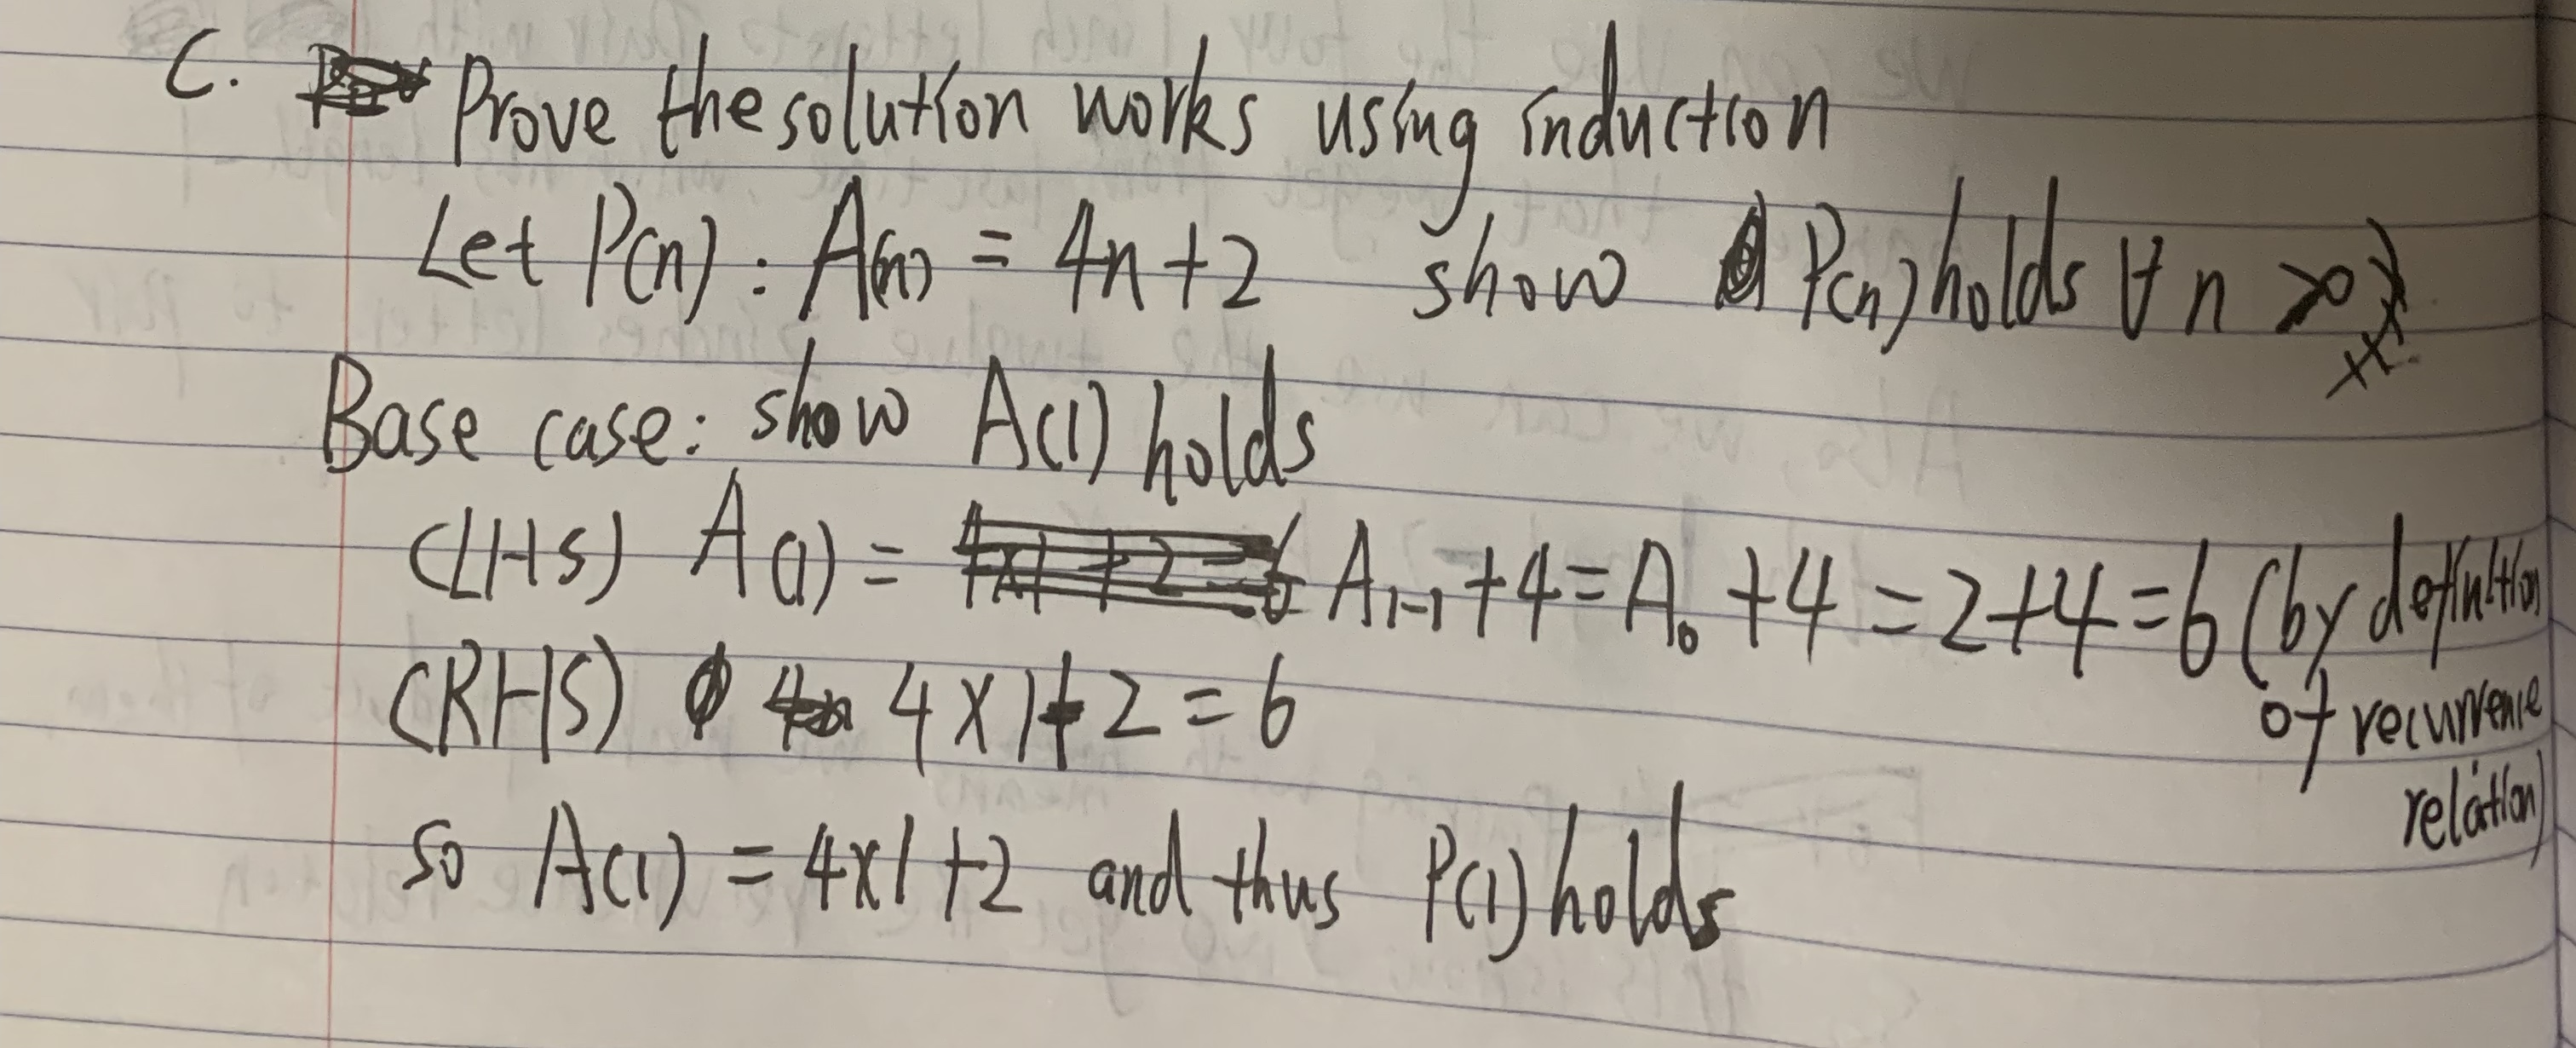 C. Prove the solution works using induction
Let P(n) : A(n) = 4n + 2 show P(n) holds ∀ n > 0
Base case: show A(1) holds
(LHS) A(1) = A₁₋₁ + 4 = A₀ + 4 = 2 + 4 = 6 (by definition
of recurrence
relation)
(RHS) 4 × 1 + 2 = 6
so A(1) = 4×1 + 2 and thus P(1) holds